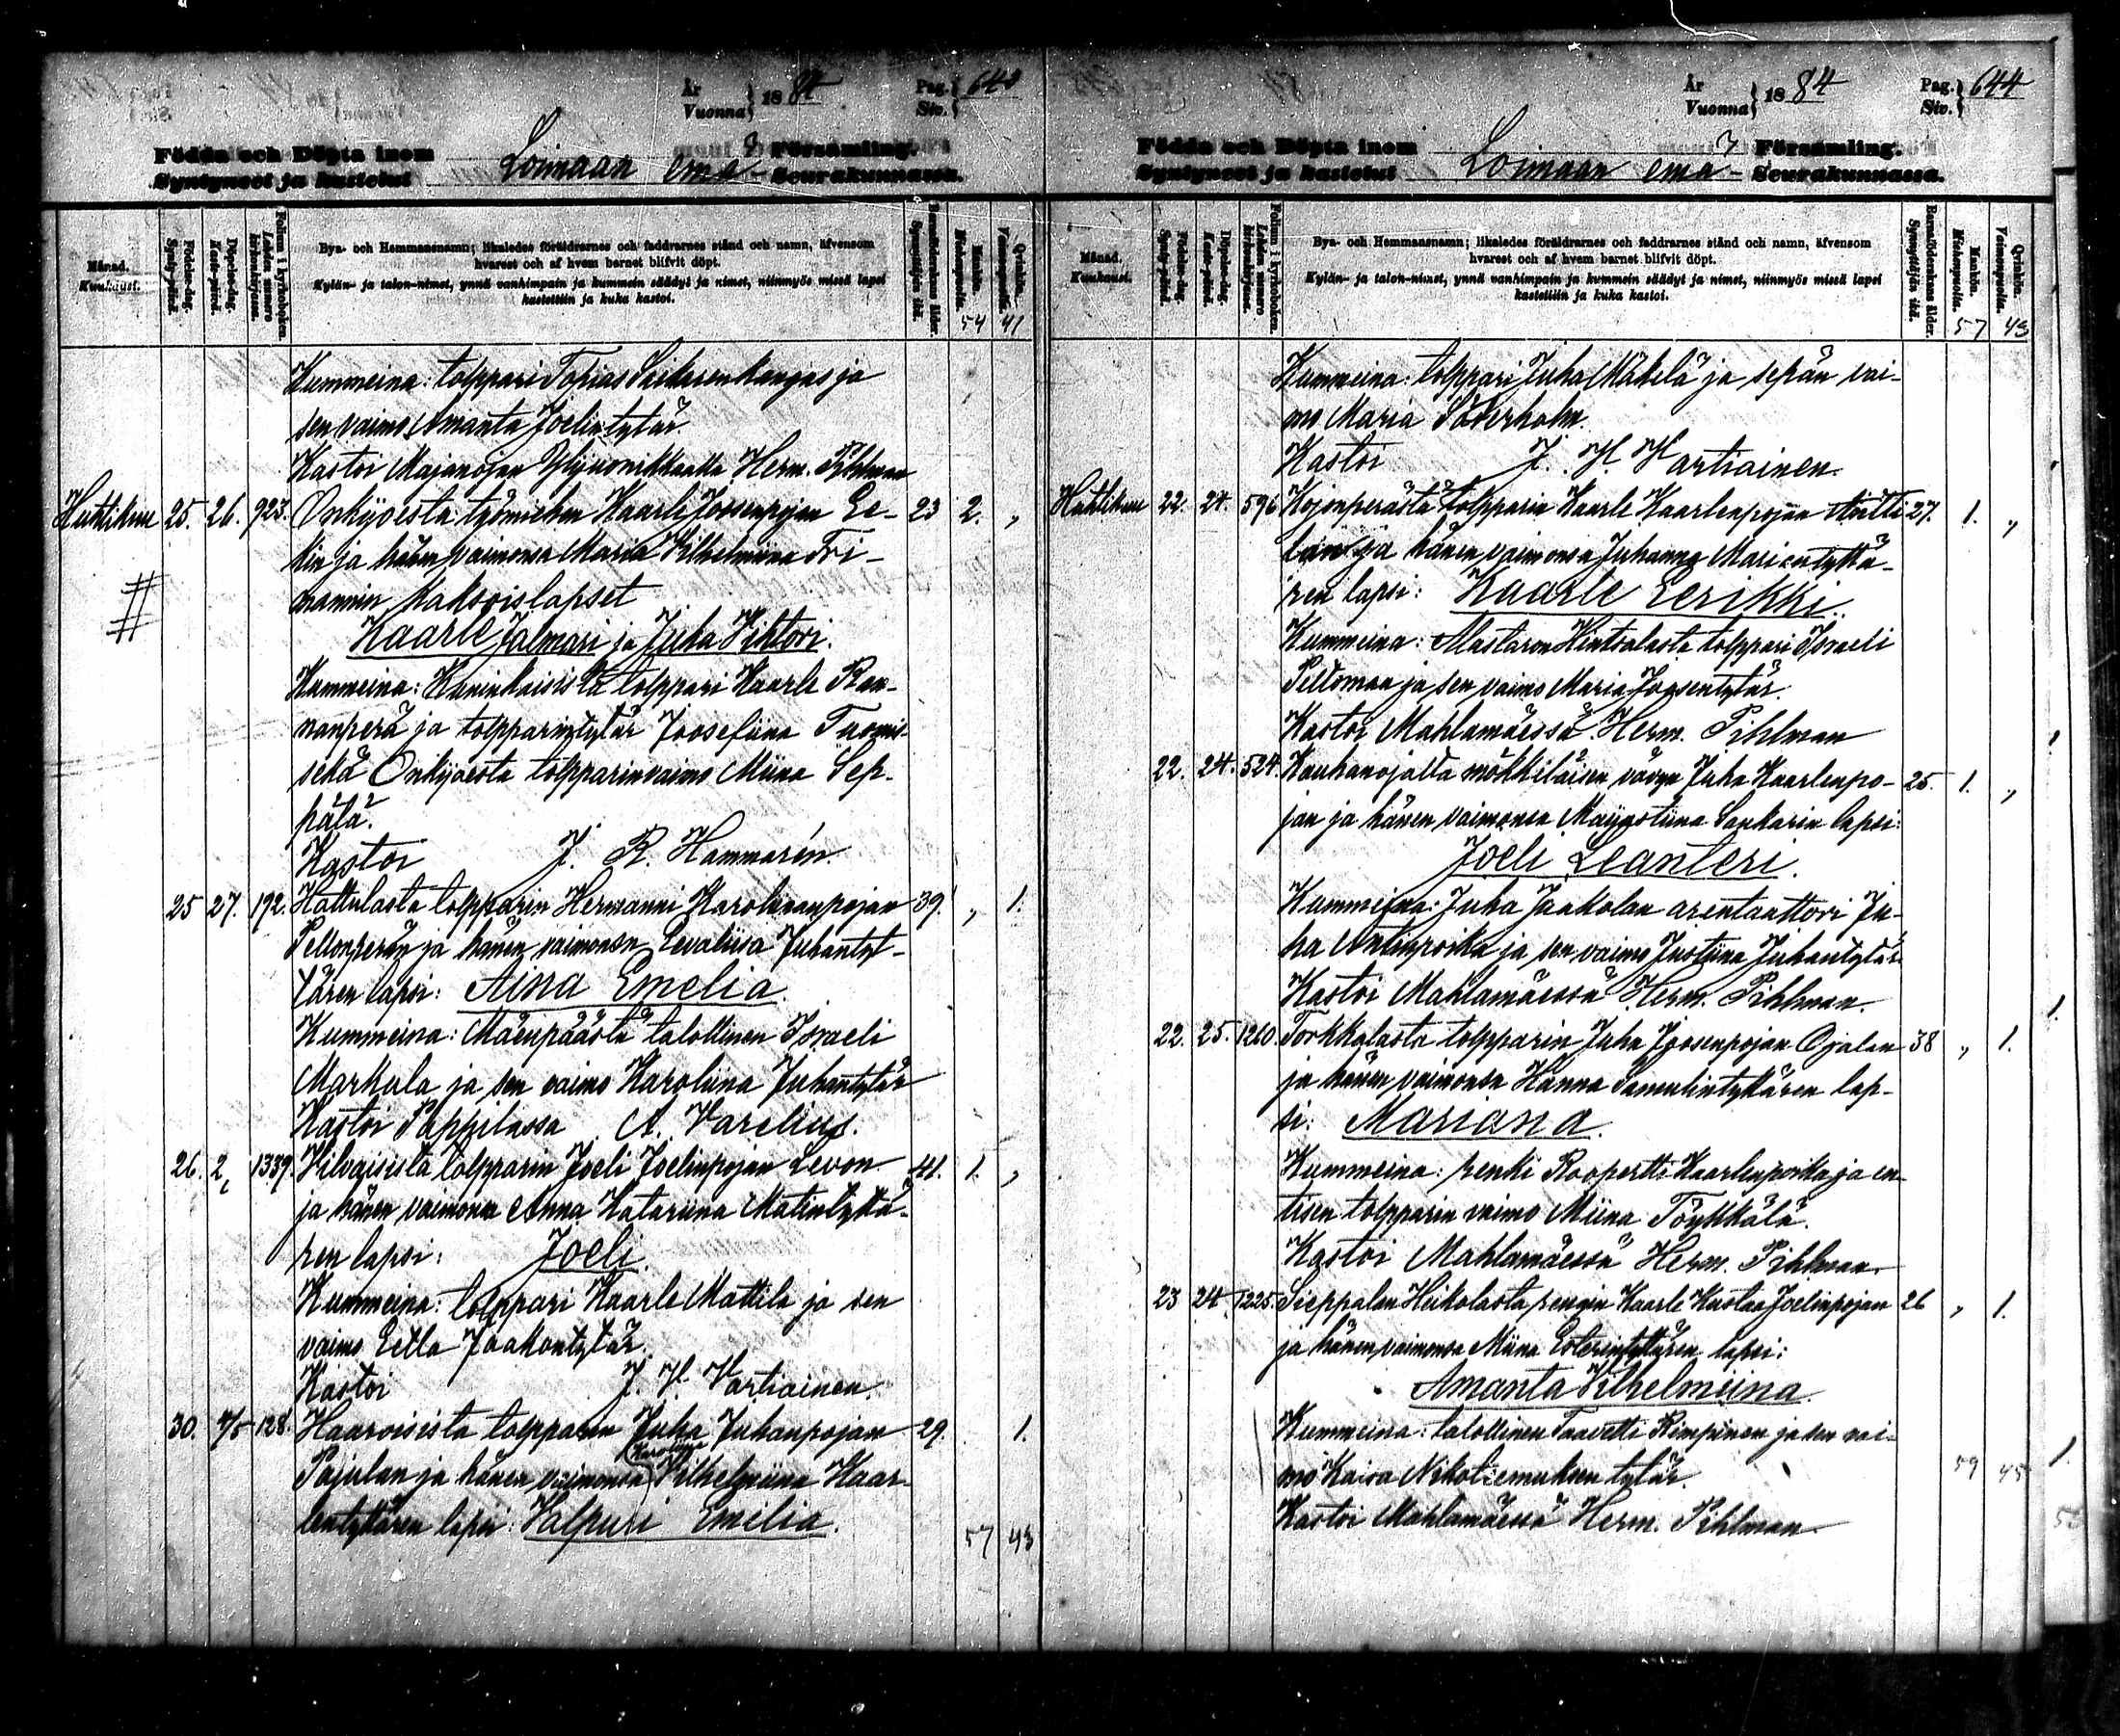 År
Vuonna } 1884
Pag.
Siv. } 643
Födda och Döpta inom
Syntyneet ja kastetut
Loimaan emä-
Församling.
Seurakunnassa.
Månad.
Kuukausi.
Födelse-dag.
Synty-päivä.
Döpelse-dag.
Kaste-päivä.
Folium i kyrkoboken.
Lehden numero
kirkonkirjassa.
Bya- och Hemmansnamn; likaledes föräldrarnes och faddrarnes stånd och namn, äfvensom
hvarest och af hvem barnet blifvit döpt.
Kylän- ja talon-nimet, ynnä vanhimpain ja kummein säädyt ja nimet, niinmyös missä lapsi
kastettiin ja kuka kastoi.
Barnföderskans ålder.
Synnyttäjän ikä.
Mankön.
Miehenpuolta.
Qvinkön.
Vaimonpuolta.
54 41
Kummeina: torppari Topias ja
sen vaimo Amanta Joelintytär
Kastoi Majanojan Herm. Pihlman
Huhtikuu 25. 26. 923. Onkijoesta työmiehen Kaarle Joosenpojan Ee- 23 2. „
lin ja hänen vaimonsa Maria Vilhelmiina Fri-
mannin kaksoislapset
#
Kaarle Jalmari ja Juha Vihtori.
Kummeina: Kaninkaisista torppari Kaarle Ran-
nanperä ja torpparintytär Joosefiina Tuomis-
sekä Onkijoesta torpparinvaimo Miina Sep-
pälä.
Kastoi J. R. Hammarén
25 27. 192. Hattulasta torpparin Hermanni Karolinanpojan 39. „ 1.
Pellonperän ja hänen vaimonsa Eevaliisa Juhantyt-
tären lapsi: Aina Emelia.
Kummeina: Mäenpäästä talollinen Israeli
Markula ja sen vaimo Karoliina Juhantytär
Kastoi Pappilassa A. Varelius.
26. 2 1339. Vilvaisista torpparin Joeli Joelinpojan Levon 41. 1. „
ja hänen vaimonsa Anna Katariina Matintyttä-
ren lapsi: Joeli.
Kummeina: torppari Kaarle Mattila ja sen
vaimo Eetla Jaakontytär.
Kastoi J. H. Vartiainen.
30. 4/5 128. Haaroisista torpparin Juha Juhanpojan 29. 1.
Karoliina
Pajulan ja hänen vaimonsa Vilhelmiina Kaar-
lentyttären lapsi: Valpuri Emilia.
57 43
År
Vuonna } 1884
Pag.
Siv. } 644
Födda och Döpta inom
Syntyneet ja kastetut
Loimaan emä-
Församling.
Seurakunnassa.
Månad.
Kuukausi.
Födelse-dag.
Synty-päivä.
Döpelse-dag.
Kaste-päivä.
Folium i kyrkoboken.
Lehden numero
kirkonkirjassa.
Bya- och Hemmansnamn; likaledes föräldrarnes och faddrarnes stånd och namn, äfvensom
hvarest och af hvem barnet blifvit döpt.
Kylän- ja talon-nimet, ynnä vanhimpain ja kummein säädyt ja nimet, niinmyös missä lapsi
kastettiin ja kuka kastoi.
Barnföderskans ålder.
Synnyttäjän ikä.
Mankön.
Miehenpuolta.
Qvinkön.
Vaimonpuolta.
57 43
Kummeina: torppari Juha Mäkelä ja sepän vai-
mo Maria Söderholm.
Kastoi J. H. Vartiainen.
Huhtikuu 22. 24. 596 Kojonperästä torpparin Kaarle Kaarlenpojan Antti- 27. 1. „
lan ja hänen vaimonsa Juhanna Mariantyttä-
ren lapsi: Kaarle Eerikki.
Kummeina: Alastaron Hintsalasta torppari Israeli
Peltomaa ja sen vaimo Maria Joosentytär.
Kastoi Mahlamäessä Herm. Pihlman
22. 24. 524. Kauhanojalta mökkiläisen vävyn Juha Kaarlenpo- 25. 1. „
jan ja hänen vaimonsa Maijastiina Sankarin lapsi:
Joeli Leanteri.
Kummeina: Juha Jaakolan arentaattori Ju-
ha Antinpoika ja sen vaimo Justiina Juhantytär
Kastoi Mahlamäessä Herm. Pihlman.
22. 25. 1260. Torkkalasta torpparin Juha Joosenpojan Ojalan 38 „ 1.
ja hänen vaimonsa Hanna Samulintyttären lap-
si: Mariana.
Kummeina: renki Roopertti Kaarlenpoika ja en-
tisen torpparin vaimo Miina Töykkälä.
Kastoi Mahlamäessä Herm. Pihlman.
23 24. 1225. Sieppalan Heikolasta rengin Kaarle Kustaa Joelinpojan 26 „ 1.
ja hänen vaimonsa Miina Esterintyttären lapsi:
Amanta Vilhelmiina.
Kummeina: talollinen Taavetti Rimpinen ja sen vai-
mo Kaisa Nikotiemuksen tytär.
59 45
Kastoi Mahlamäessä Herm. Pihlman